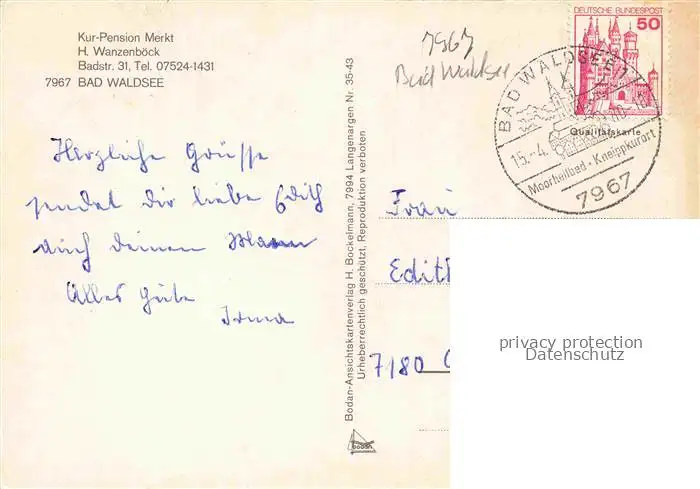 Kur-Pension Merkt
H. Wanzenböck
Badstr. 31, Tel. 07524-1431
7967 BAD WALDSEE
7967
Bad Waldsee
DEUTSCHE BUNDESPOST
50
BAD WALDSEE 1
15.-4.
Qualitätskarte
Moorheilbad · Kneippkurort
7967
Herzliche Grüsse
sendet dir liebe Edith
auch deinen Mann
Alles Gute
Irma
Bodan-Ansichtskartenverlag H. Bockelmann, 7994 Langenargen Nr. 35-43
Urheberrechtlich geschützt, Reproduktion verboten
bodan
Frau
Edith
7180 C
privacy protection
Datenschutz